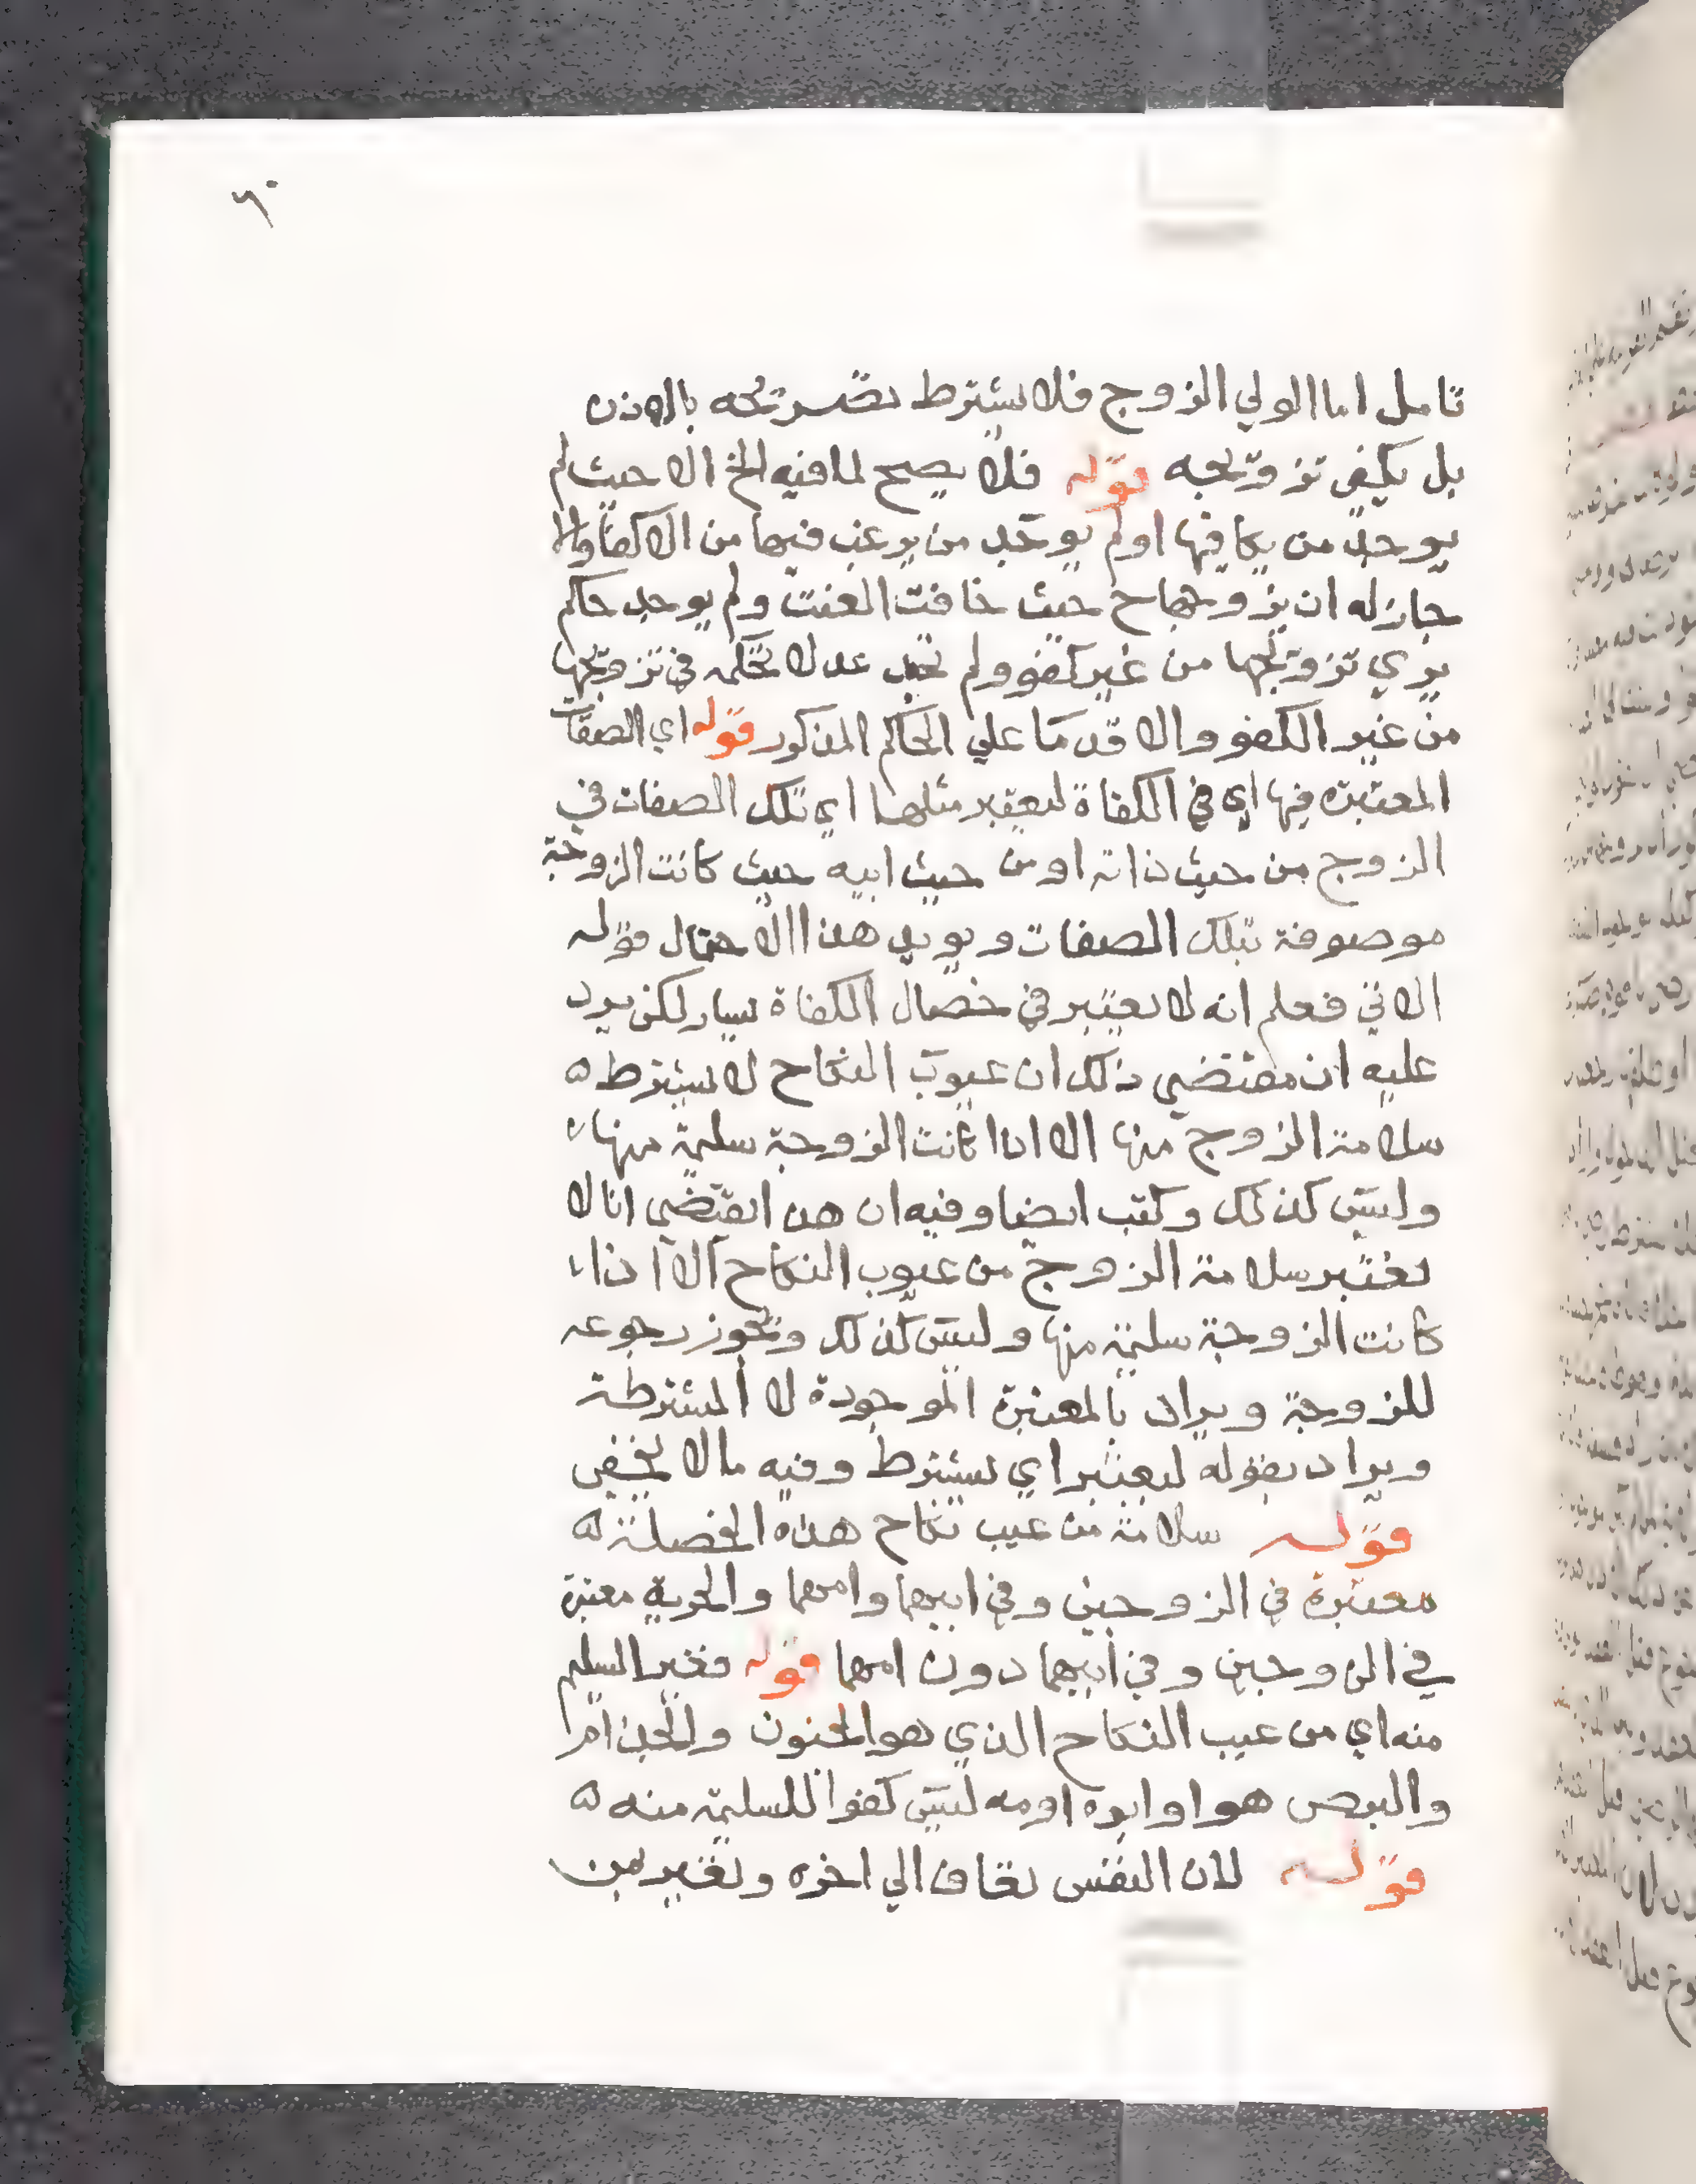 ٦٠
تامل اما الولي الزوج فلا يشترط تصريحه بالاذن
بل يكفي تزويجه قوله فلا يصح لما فيه الخ الا حيث لم
يوجد من يكافيها او لم يوجد من يرغب فيها من الاكفا والا
جاز له ان يزوجها ح حيث خافت العنت ولم يوجد حاكم
يري تزويجها من غير كفو ولم تجد عدلا تحكمه في تزويجها
من غير الكفو والا قدما علي الحاكم المذكور قوله اي الصفات
المعتبره فيها اي في الكفاة ليعتبر مثلها اي تلك الصفات في
الزوج من حيث ذاته او من حيث ابيه حيث كانت الزوجة
موصوفة بتلك الصفات ويويد هذا الاحتمال قوله
الاتي فعلم انه لا يعتبر في خصال الكفاة يسار لكن يرد
عليه ان مقتضي ذلك ان عيوب النكاح لا يشترط
سلامة الزوج منها الا اذا كانت الزوجة سليمة منها
وليس كذلك وكتب ايضا وفيه ان هذا يقتضي انا لا
نعتبر سلامة الزوج من عيوب النكاح الا اذا
كانت الزوجة سليمة منها وليس كذلك ويجوز رجوعه
للزوجة ويراد بالمعتبرة الموجودة لا المشترطة
ويراد بقوله ليعتبر اي يشترط وفيه ما لا يخفي
قوله سلامة من عيب نكاح هذه الخصلة
معتبرة في الزوجين وفي ابيهما وامهما والحرية معتبرة
في الزوجين وفي ابيهما دون امهما قوله فغير السليم
منه اي من عيب النكاح الذي هو الجنون والجذام
والبرص هو او ابوه او امه ليس كفوا للسليمة منه
قوله لان النفس تعاف الي اخره وتغير من